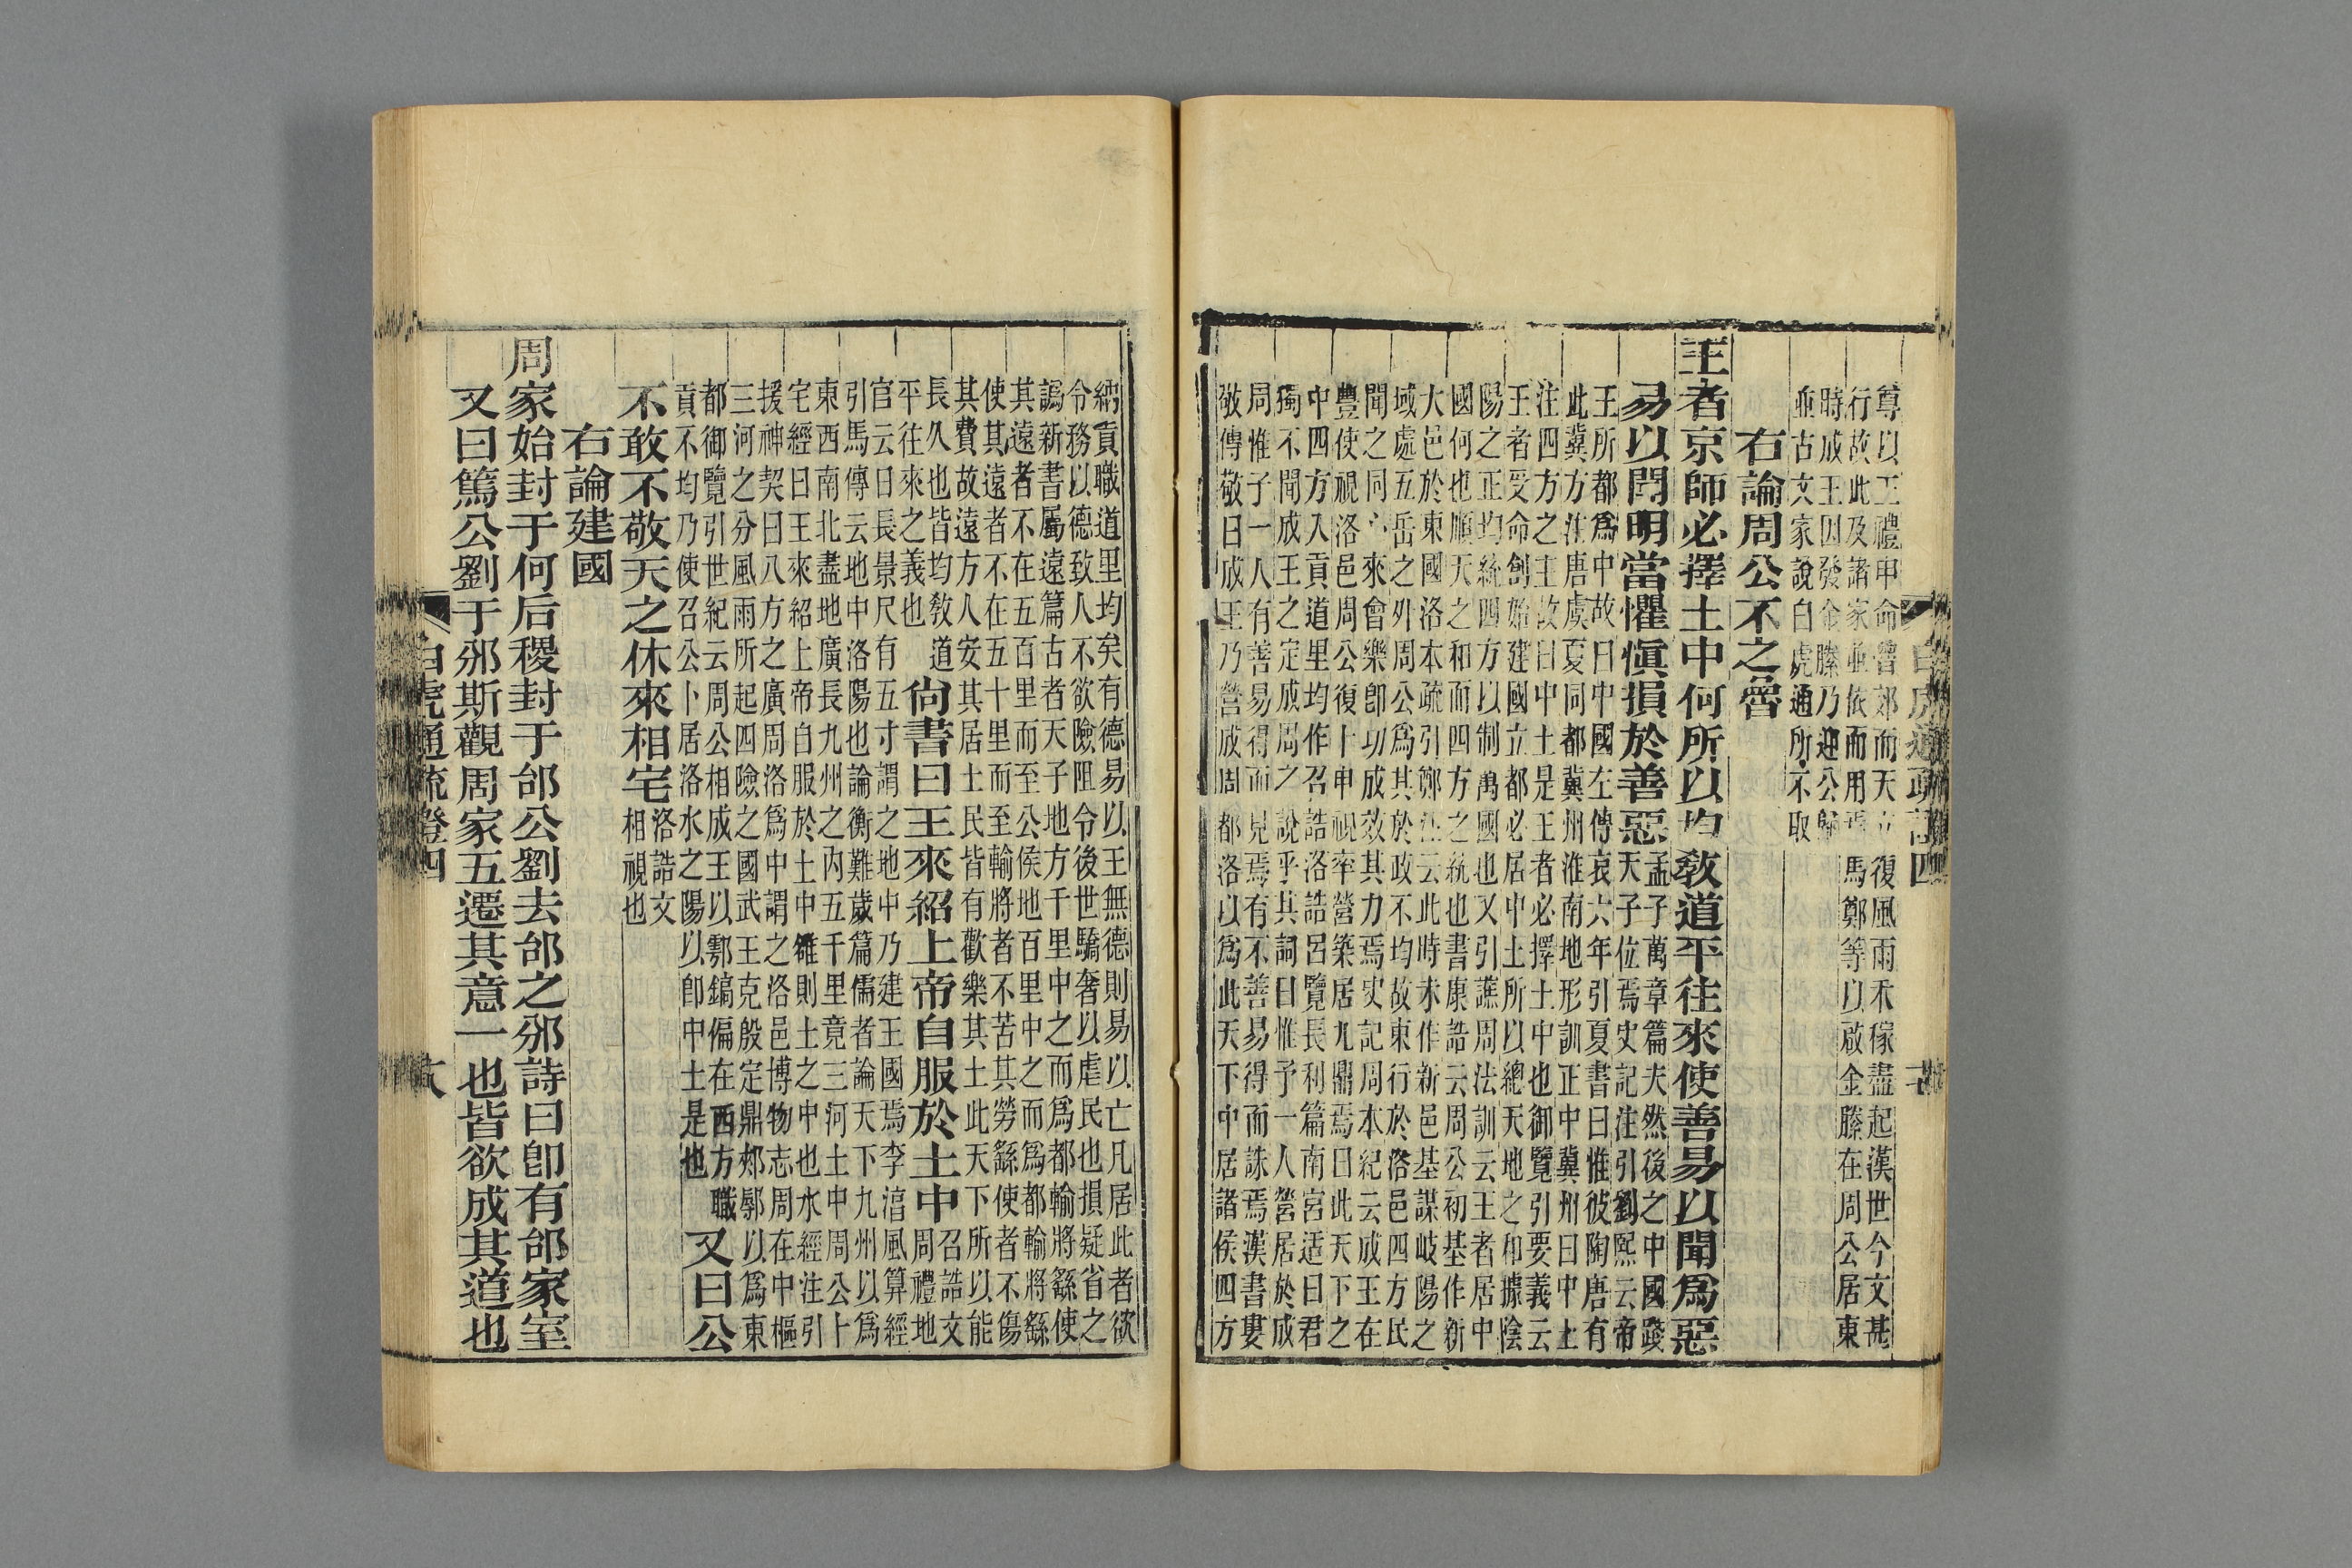 白虎通疏證四
尊以王禮申命魯郊而天立復風雨禾稼盡起漢世今文甚
行故此及諸家並依而用焉馬鄭等以啟金縢在周公居東
時成王因發金縢乃迎公歸
並古文家說白虎通所不取
右論周公不之魯
王者京師必擇土中何所以均教道平往來使善易以聞爲惡
易以聞明當懼愼損於善惡
孟子萬章篇夫然後之中國踐
天子位焉史記注引劉熙云帝
王所都爲中故曰中國左傳哀六年引夏書曰惟彼陶唐有
此冀方注唐虞夏同都冀州淮南地形訓正中冀州曰中土
注四方之主故曰中土是王者必擇土中也御覽引要義云
王者受命創始建國立都必居中土所以總天地之和據陰
陽之正均統四方以制萬國也又引譙周法訓云王者居中
國何也順天之和而四方之統也書康誥云周公初基作新
大邑於東國洛本疏引鄭注云此時未作新邑基謀岐陽之
域處五岳之外周公爲其於政不均故東行於洛邑四方民
聞之同心來會樂卽功成效其力焉史記周本紀云成王在
豐使視洛邑周公復卜申視卒營築居九鼎焉曰此天下之
中四方入貢道里均作召誥洛誥呂覽長利篇南宮适曰君
獨不聞成王之定成周之說乎其詞曰惟予一人營居於成
周惟予一人有善易得而見焉有不善易得而誅焉漢書婁
敬傳敬曰成王乃營成周都洛以爲此天下中居諸侯四方
納貢職道里均矣有德易以王無德則易以亡凡居此者欲
令務以德致人不欲險阻令後世驕奢以虐民也損疑省之
譌新書屬遠篇古者天子地方千里中之而爲都輸將繇使
其遠者不在五百里而至公侯地百里中之而爲都輸將繇
使其遠者不在五十里而至輸將者不苦其勞繇使者不傷
其費故遠方人安其居土民皆有歡樂其土此天下所以能
長久也皆均教道
平往來之義也
尙書曰王來紹上帝自服於土中
召誥文
周禮地
官云日長景尺有五寸謂之地中乃建王國焉李淳風算經
引馬傳云地中洛陽也論衡難歲篇儒者論天下九州以爲
東西南北盡地廣長九州之內五千里竟三河土中周公卜
宅經曰王來紹上帝自服於土中雒則土之中也水經注引
援神契曰八方之廣周洛爲中謂之洛邑博物志周在中樞
三河之分風雨所起四險之國武王克殷定鼎郟鄏以爲東
都御覽引世紀云周公相成王以酆鎬偏在西方職
貢不均乃使召公卜居洛水之陽以卽中土是也
又曰公
不敢不敬天之休來相宅
洛誥文
相視也
右論建國
周家始封于何后稷封于邰公劉去邰之邠詩曰卽有邰家室
又曰篤公劉于邠斯觀周家五遷其意一也皆欲成其道也
白虎通疏證四